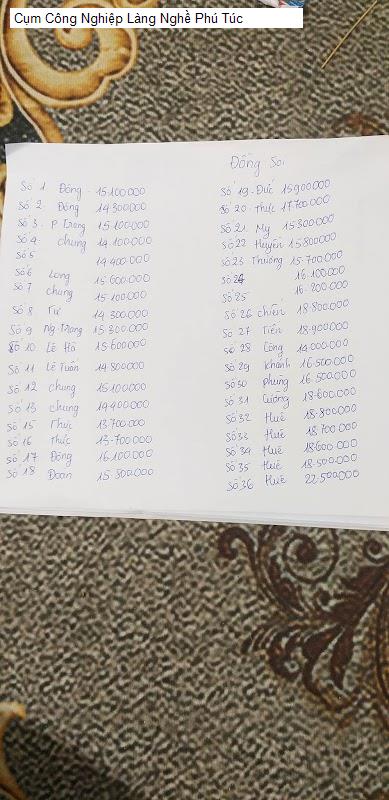 Cụm Công Nghiệp Làng Nghề Phú Túc
Số 1 Đông - 15100000
Số 2 Đông 14300000
Số 3 P Trang 15100000
Số 4 chung 14.100.000
Số 5 14.400.000
Số 6 Long 15600000
Số 7 chung 15.100.000
Số 8 Tư 14.300.000
Số 9 Ng. Trang 15.300.000
Số 10 Lê Hà 15600000
Số 11 Lê Tuân 14.800000
Số 12 chung 15.100.000
Số 13 chung 14.400.000
Số 15 Thức 13.700000
Số 16 Thức 13.700.000
Số 17 Đông 16.100.000
Số 18 Đoan 15.800000
Đồng Soi
Số 19. Đức 15900.000
Số 20. Thức 17.700.000
Số 21. My 15300.000
Số 22 Huyền 15800000
Số 23 Thưởng 15.700.000
Số 24 16.100.000
Số 25 16.200.000
Số 26 chiến 18.800.000
Số 27 Tiến 18.900.000
Số 28 Công 14.000.000
Số 29 Khánh 16.500.000
Số 30 phụng 16.500.000
Số 31 Cương 18.600.000
Số 32 Huê 18.800.000
Số 33 Huê 18.700.000
Số 34 Huê 18.600.000
Số 35 Huê 18.500.000
Số 36 Huê 22.500.000